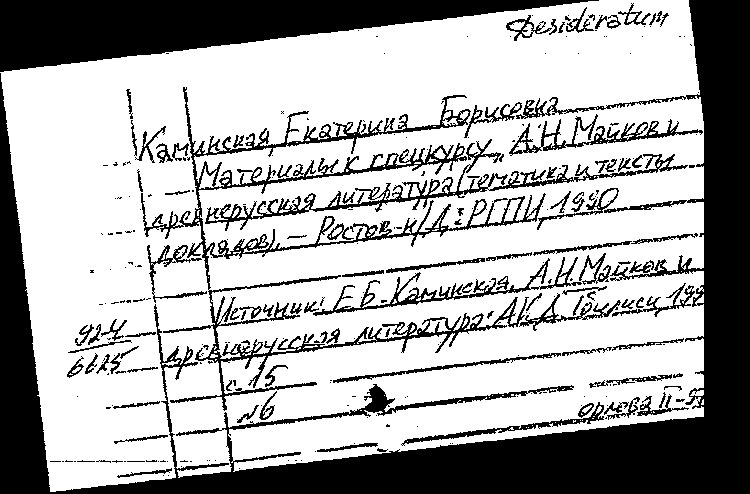 Desideratum
Каминская, Екатерина Борисовна
Материалы к спецкурсу „А.Н. Майков и
древнерусская литература (тематика и тексты
докладов). – Ростов-н/Д.: РГПИ, 1990
Источник: Е.Б. Каминская. А.Н. Майков и
древнерусская литература: АКД. Тбилиси, 199
92-4
6625
с. 15
№6
Орлова II-97